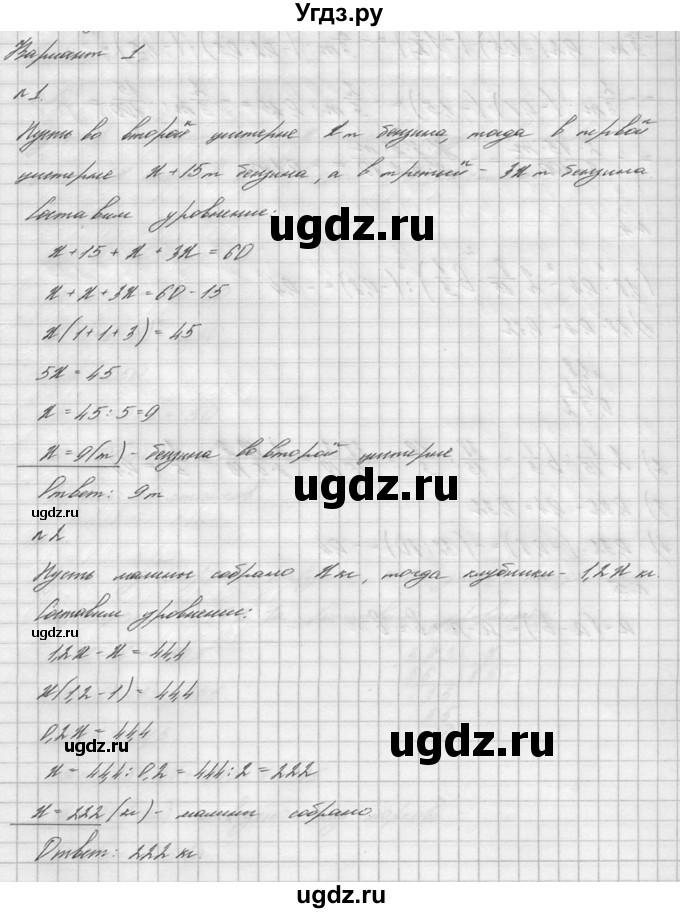 Угдз.ру
Вариант 1
№1.
Пусть во второй цистерне x т бензина, тогда в первой
цистерне x+15 т бензина, а в третьей - 3x т бензина
Составим уровнение:
ugdz.ru
x + 15 + x + 3x = 60
x + x + 3x = 60 - 15
x(1+1+3) = 45
5x = 45
x = 45 : 5 = 9
x = 9(т) - бензина во второй цистерне
ugdz.ru
Ответ: 9т
ugdz.ru
№2
Пусть малины собрано x кг, тогда клубники - 1,2x кг.
Составим уровнение:
ugdz.ru
1,2x - x = 44,4
x(1,2-1) = 44,4
0,2x = 44,4
ugdz.ru
ugdz.ru
x = 44,4 : 0,2 = 444 : 2 = 222
x = 222 (кг) - малины собрано
Ответ: 222 кг.
ugdz.ru